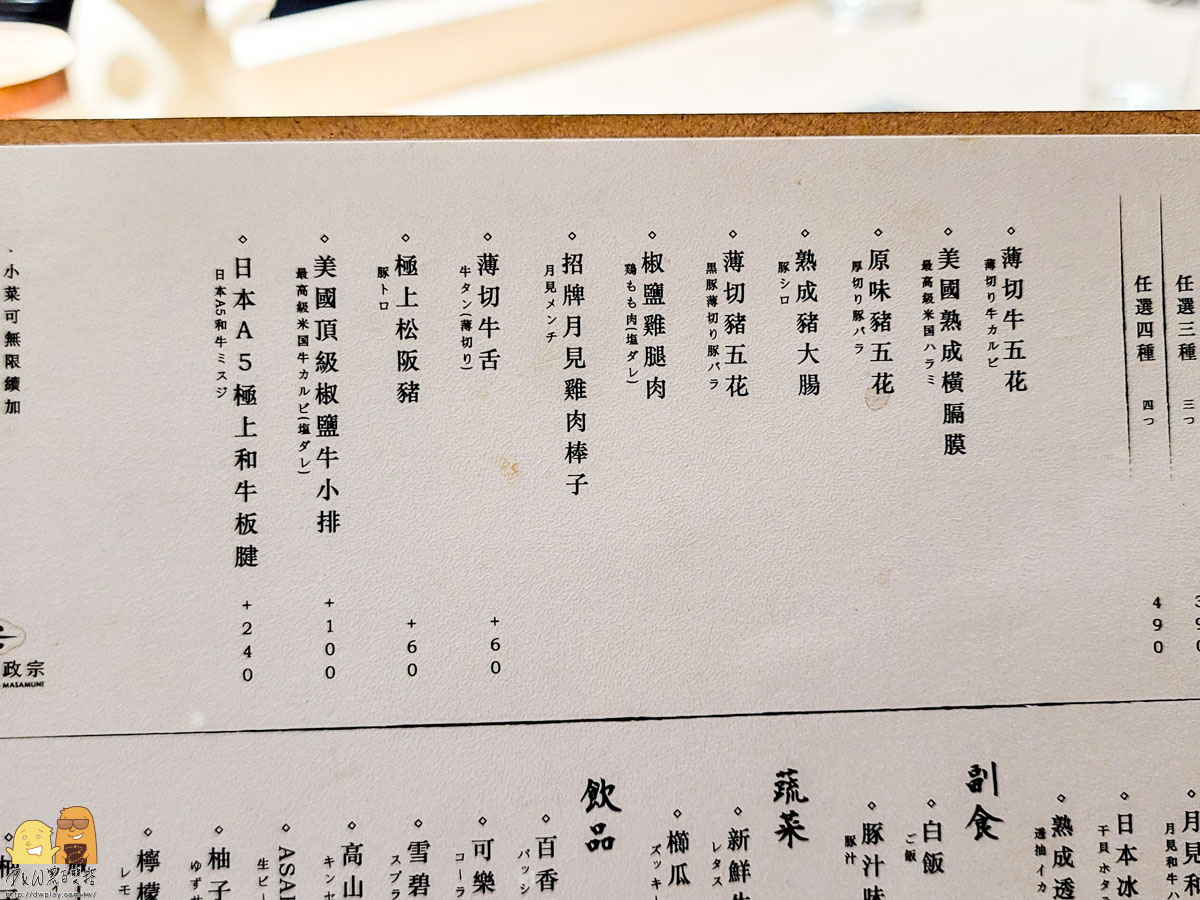 任選三種
三つ
任選四種
四つ
490
◇薄切牛五花
薄切り牛カルビ
◇美國熟成橫膈膜
最高級米国ハラミ
◇原味豬五花
厚切り豚バラ
◇熟成豬大腸
豚シロ
◇薄切豬五花
黒豚薄切り豚バラ
◇椒鹽雞腿肉
鶏もも肉(塩ダレ)
◇招牌月見雞肉棒子
月見メンチ
◇薄切牛舌 +60
牛タン(薄切り)
◇極上松阪豬 +60
豚トロ
◇美國頂級椒鹽牛小排 +100
最高級米国牛カルビ(塩ダレ)
◇日本A5極上和牛板腱 +240
日本A5和牛ミスジ
·小菜可無限續加
政宗
MASAMUNE
◇月見和
月見和牛ハ
◇日本冰
干貝ホタ
◇熟成透
透抽イカ
副食
◇白飯
ご飯
◇豚汁味
豚汁
蔬菜
◇新鮮生
レタス
◇櫛瓜
ズッキー
飲品
◇百香
パッシ
◇可樂
コーラ
◇雪碧
スプラ
◇高山
キンセ
◇ASA
生ビー
◇柚子
ゆず
◇檸檬
レモ